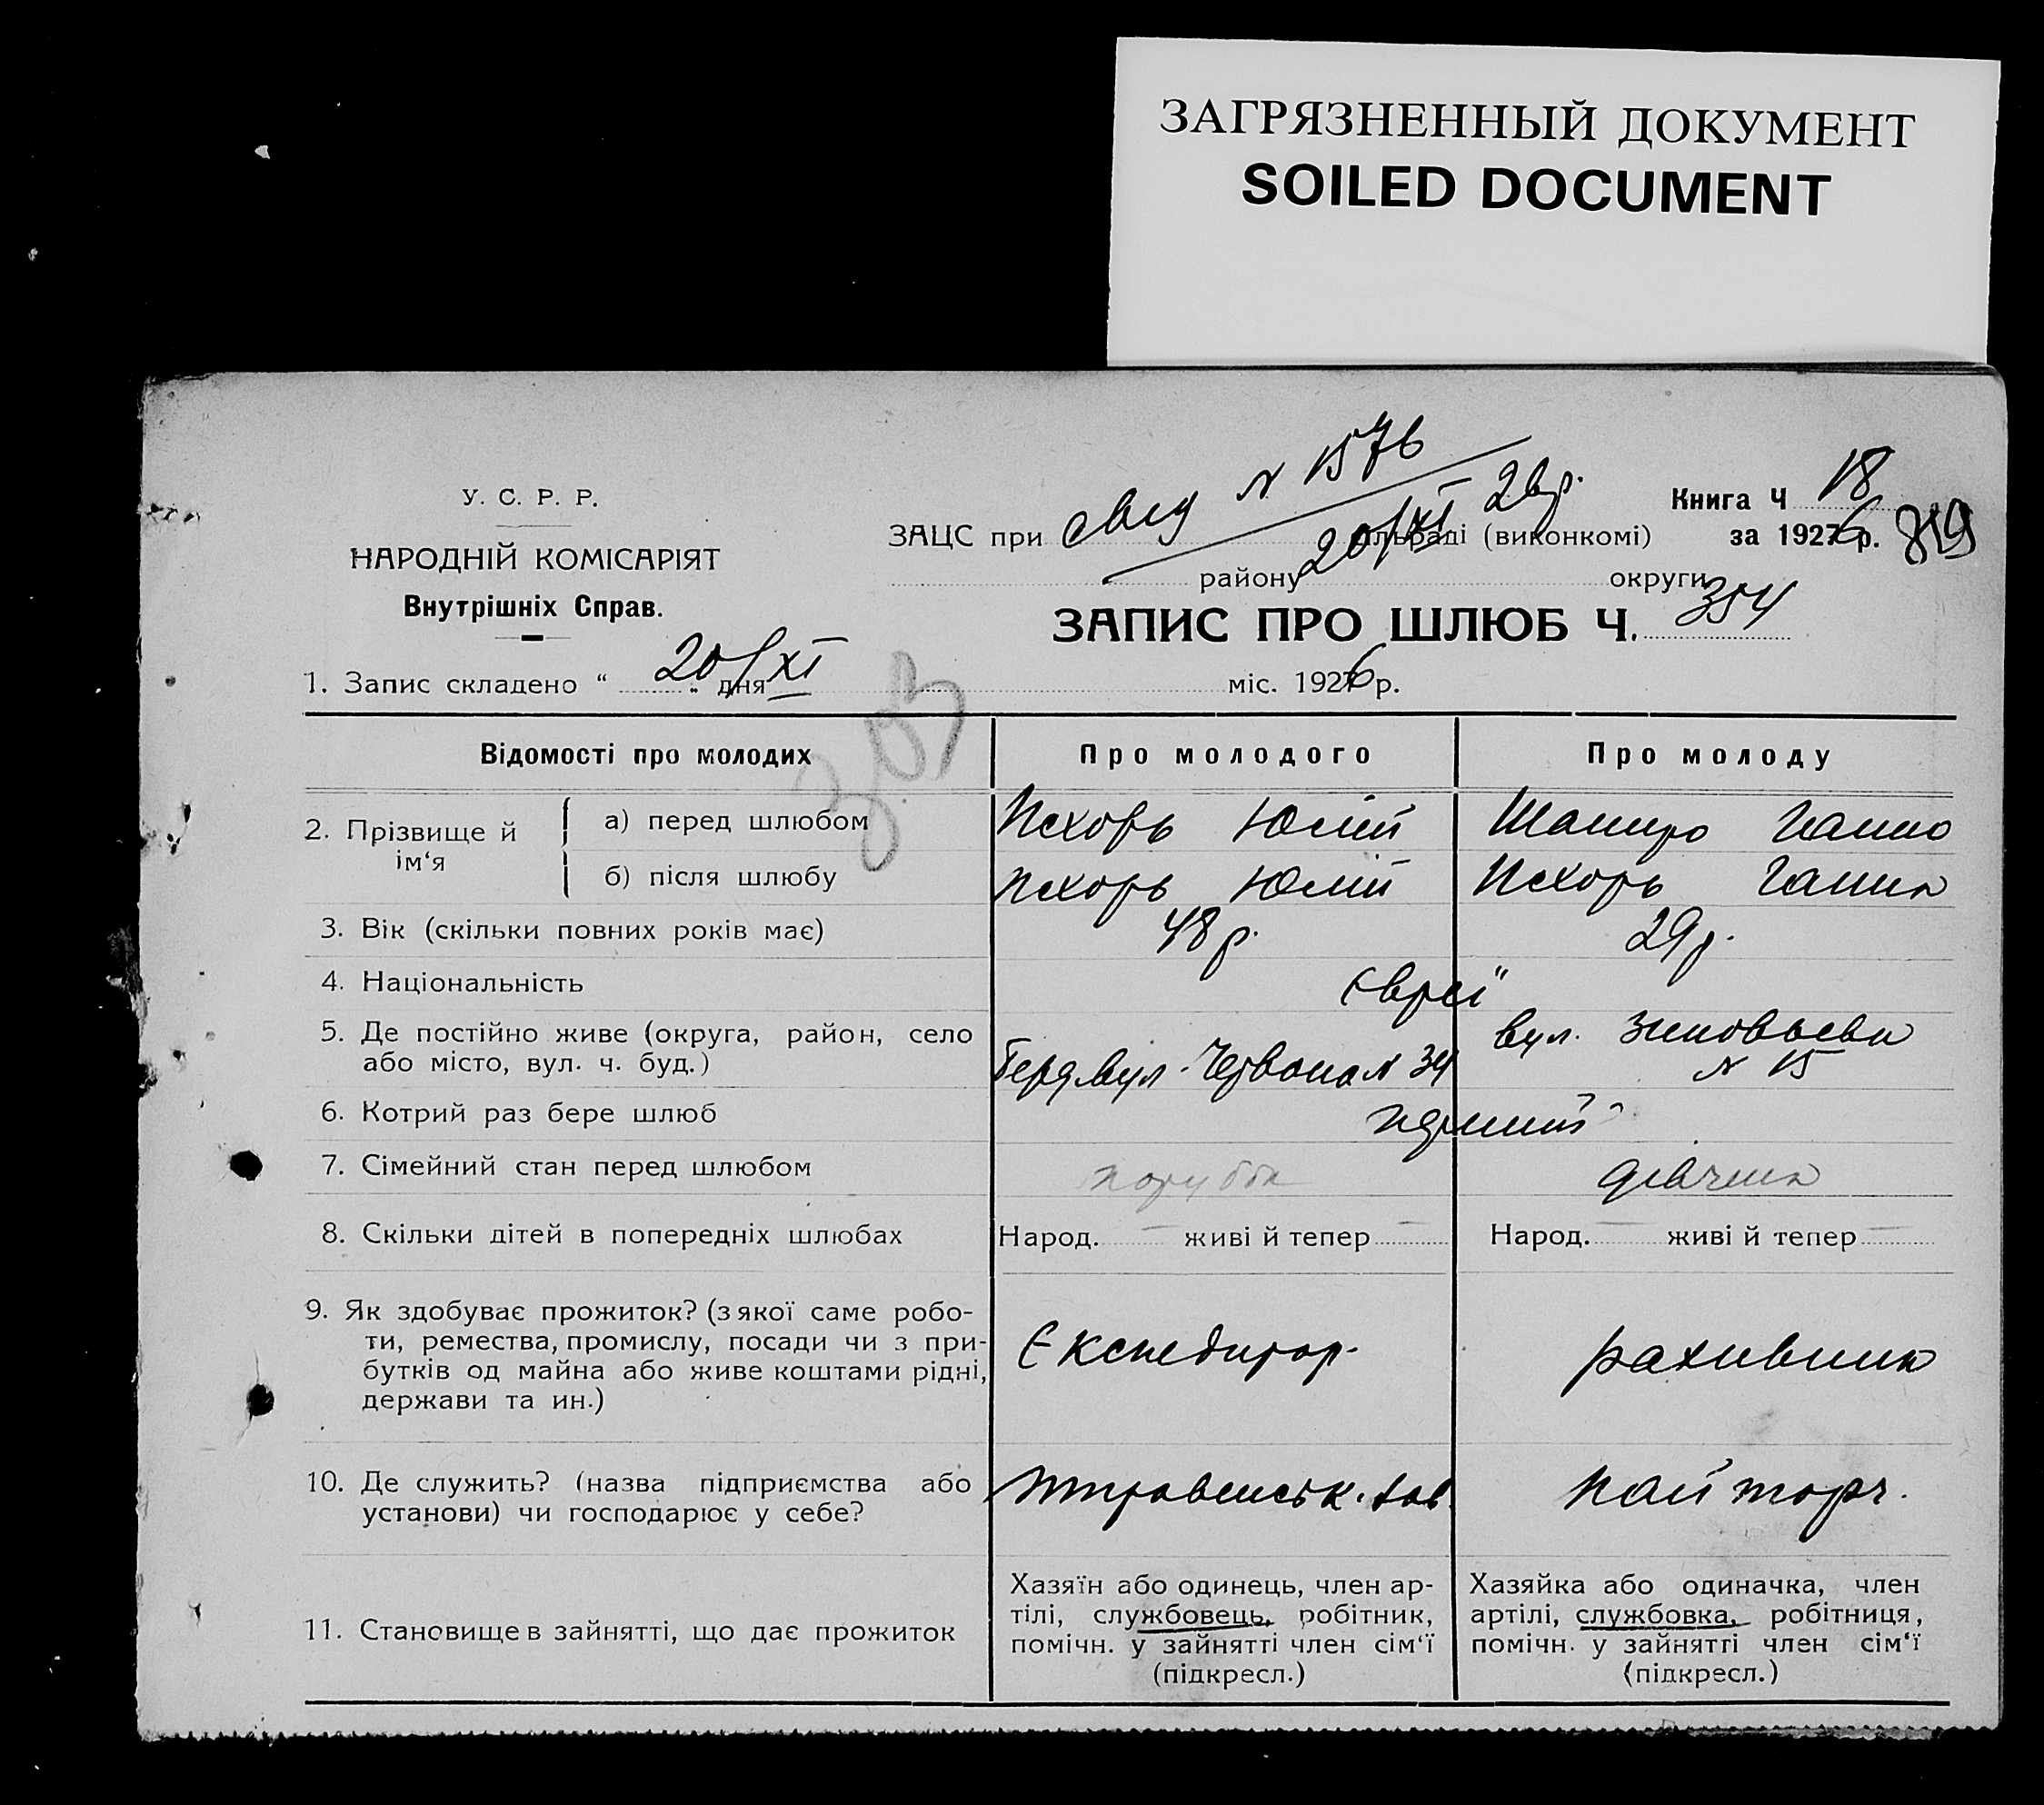 ЗАГРЯЗНЕННЫЙ ДОКУМЕНТ
SOILED DOCUMENT
У. С. Р. Р.
НАРОДНІЙ КОМІСАРІЯТ
Внутрішніх Справ.
N 1576
20/XI 26р.
ЗАЦС при (виконкомі)
району округи
Книга Ч 18
за 1926 р. 819
ЗАПИС ПРО ШЛЮБ Ч. 354
1. Запис складено “ 20/XI „ дня міс. 1926 р.
Відомості про молодих Про молодого Про молоду
2. Прізвище й ім‘я
а) перед шлюбом Псхорь Юлій Шапиро Ганна
б) після шлюбу Псхорь Юлій Псхорь Ганна
3. Вік (скільки повних років має) 48 р. 29 р.
4. Національність Євреї
5. Де постійно живе (округа, район, село
або місто, вул. ч. буд.)
вул. Червона N 34
вул. Зиновьева
N 15
6. Котрий раз бере шлюб
7. Сімейний стан перед шлюбом парубок дівчина
8. Скільки дітей в попередніх шлюбах Народ. — живі й тепер — Народ. — живі й тепер —
9. Як здобуває прожиток? (з якої саме робо-
ти, ремества, промислу, посади чи з при-
бутків од майна або живе коштами рідні,
держави та ин.)
Експедитор.
рахивник
10. Де служить? (назва підприємства або
установи) чи господарює у себе?
пайторг.
11. Становище в зайнятті, що дає прожиток
Хазяїн або одинець, член ар-
тілі, службовець, робітник,
помічн. у зайнятті член сім‘ї
(підкресл.)
Хазяйка або одиначка, член
артілі, службовка, робітниця,
помічн. у зайнятті член сім‘ї
(підкресл.)